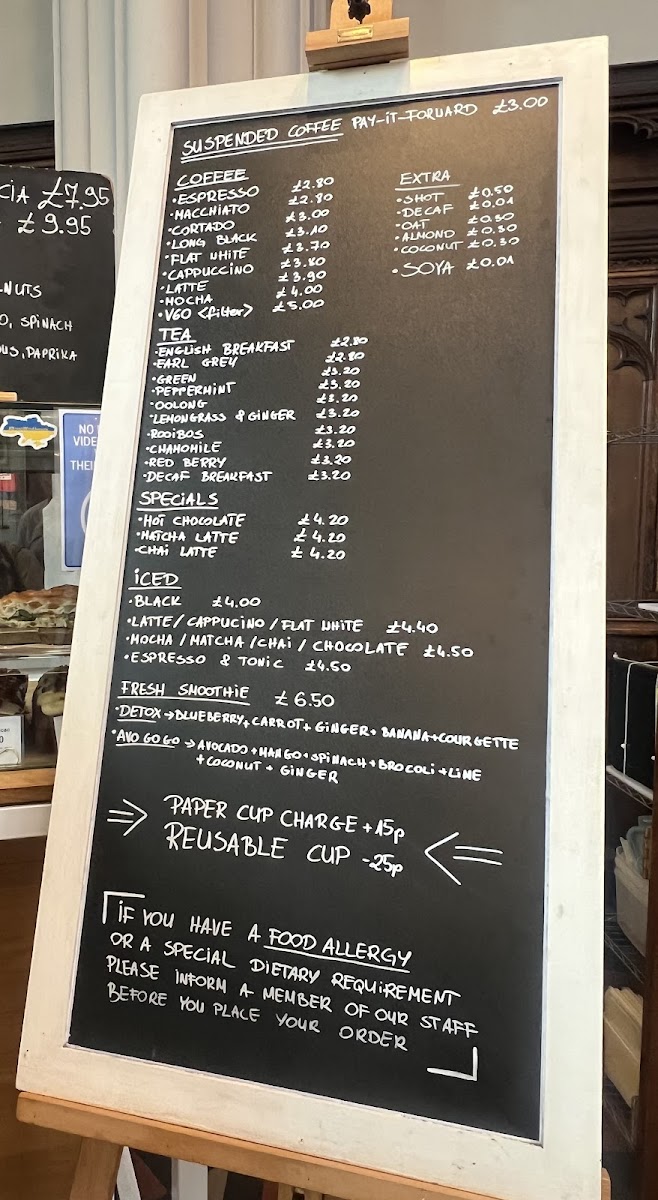 CIA £7.95
£9.95
NUTS
O, SPINACH
US, PAPRIKA
NO
VIDE
THEI
SUSPENDED COFFEE PAY-IT-FORWARD £3.00
COFFEE
·ESPRESSO £2.80
·MACCHIATO £2.80
·CORTADO £3.00
·LONG BLACK £3.10
·FLAT WHITE £3.70
·CAPPUCCINO £3.80
·LATTE £3.90
·MOCHA £4.00
·V60 <filter> £5.00
EXTRA
·SHOT £0.50
·DECAF £0.01
·OAT £0.30
·ALMOND £0.30
·COCONUT £0.30
·SOYA £0.01
TEA
·ENGLISH BREAKFAST £2.80
·EARL GREY £2.80
·GREEN £3.20
·PEPPERMINT £3.20
·OOLONG £3.20
·LEMONGRASS & GINGER £3.20
·ROOIBOS £3.20
·CHAMOMILE £3.20
·RED BERRY £3.20
·DECAF BREAKFAST £3.20
SPECIALS
·HOT CHOCOLATE £4.20
·MATCHA LATTE £4.20
·CHAI LATTE £4.20
ICED
·BLACK £4.00
·LATTE/CAPPUCINO/FLAT WHITE £4.40
·MOCHA/MATCHA/CHAI/CHOCOLATE £4.50
·ESPRESSO & TONIC £4.50
FRESH SMOOTHIE £6.50
·DETOX→BLUEBERRY+CARROT+GINGER+BANANA+COURGETTE
·AVO GO GO→AVOCADO+MANGO+SPINACH+BROCOLI+LIME
+COCONUT+GINGER
⇒ PAPER CUP CHARGE +15p
REUSABLE CUP -25p ⇐
IF YOU HAVE A FOOD ALLERGY
OR A SPECIAL DIETARY REQUIREMENT
PLEASE INFORM A MEMBER OF OUR STAFF
BEFORE YOU PLACE YOUR ORDER